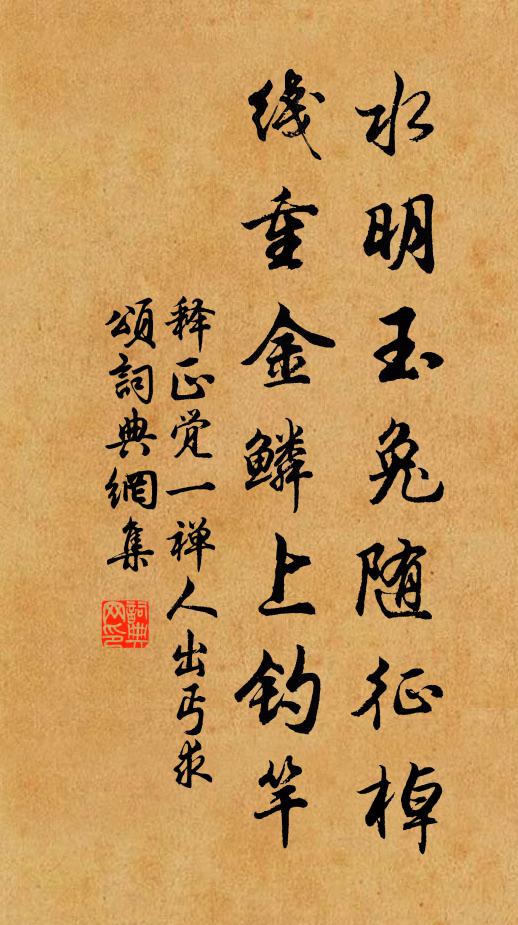 水明玉兔随征棹
线重金鳞上钓竿
释正觉一禅人出丐求
颂词典网集
詞典
网印